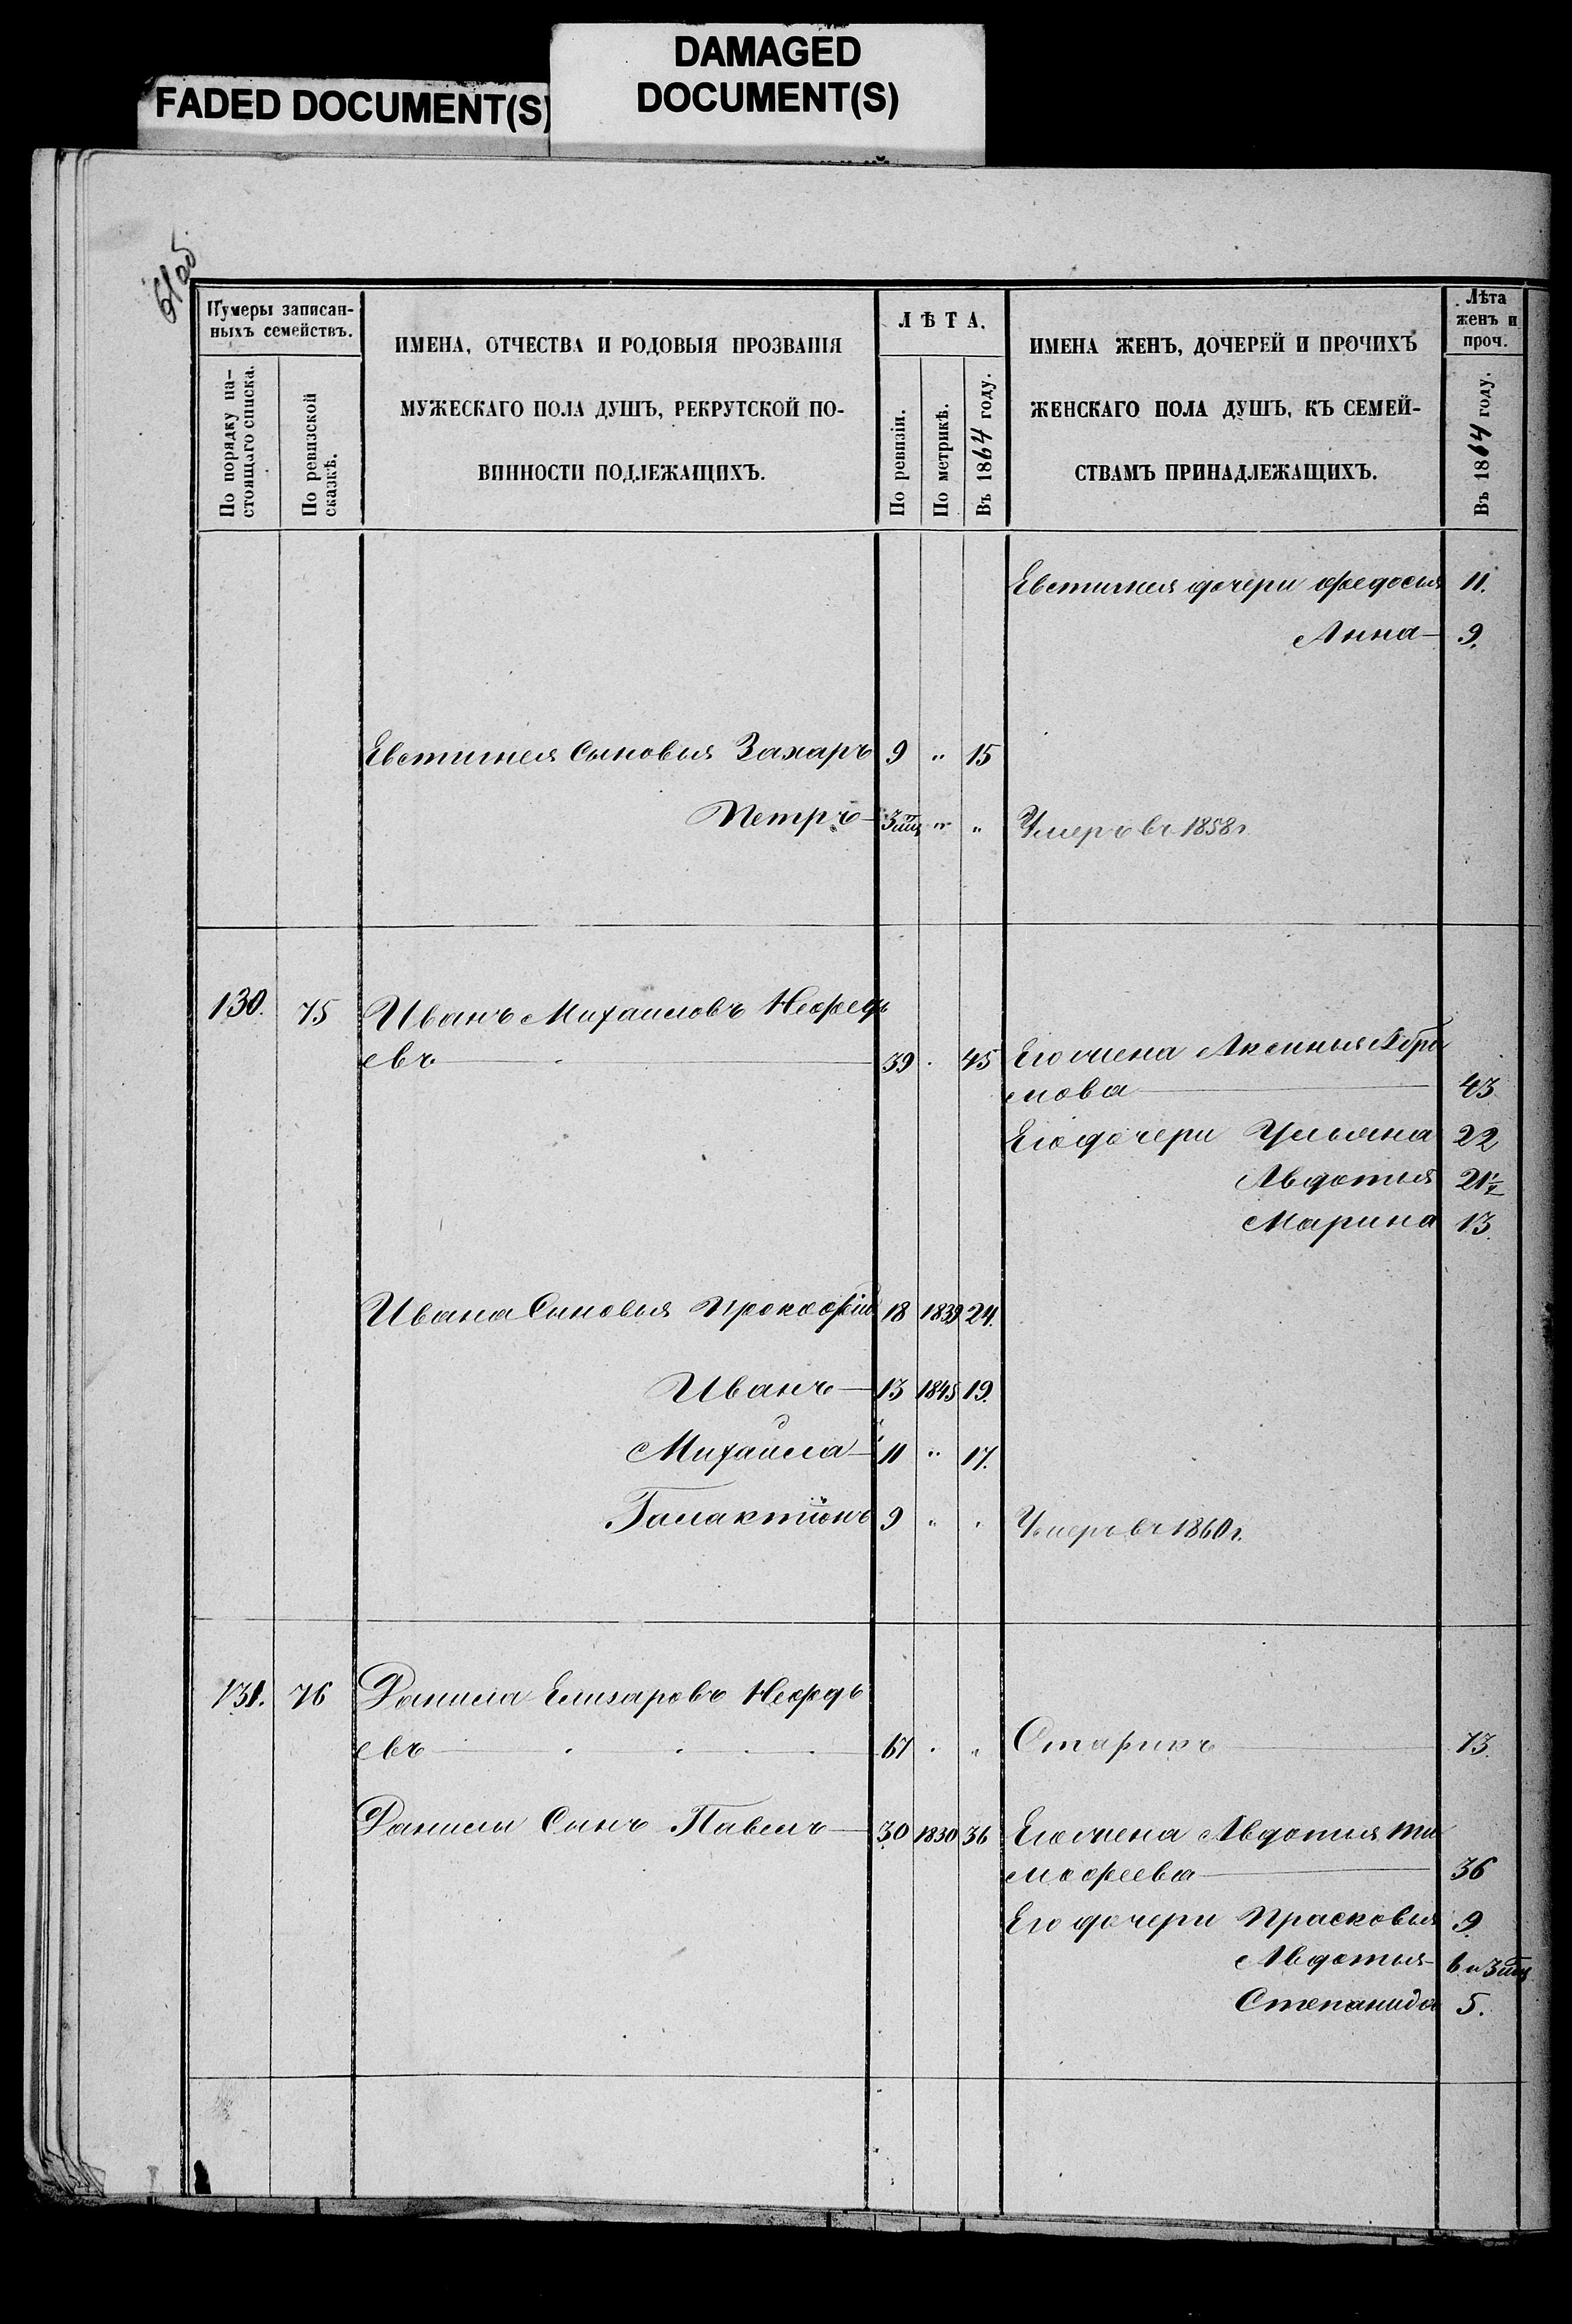 FADED DOCUMENT(S)
DAMAGED
DOCUMENT(S)
61 об.
Нумеры записан-
ныхъ семействъ.
По порядку на-
стоящаго списка.
По ревизской
сказкѣ.
ИМЕНА, ОТЧЕСТВА И РОДОВЫЯ ПРОЗВАНІЯ
МУЖЕСКАГО ПОЛА ДУШЪ, РЕКРУТСКОЙ ПО-
ВИННОСТИ ПОДЛЕЖАЩИХЪ.
ЛѢТА.
По ревизіи.
По метрикѣ.
Въ 1864 году.
ИМЕНА ЖЕНЪ, ДОЧЕРЕЙ И ПРОЧИХЪ
ЖЕНСКАГО ПОЛА ДУШЪ, КЪ СЕМЕЙ-
СТВАМЪ ПРИНАДЛЕЖАЩИХЪ.
Лѣта
женъ и
проч.
Въ 1864 году.
Евстигнея дочери Федосья 11.
Анна 9.
Евстигнея Сыновья Захаръ 9 " 15
Петръ 3 мц " " Умеръ въ 1858 г.
130. 75 Иванъ Михаиловъ Нефедь
евъ 39 . 45 Его жена Аксинья Абра
мова 43
Его дочери Ульяна 22
Авдотья 21½
Марина 13.
Ивана Сыновья Прокофій 18 1839 24.
Иванъ 13 1845 19.
Михаила 11 " 17.
Галактіонъ 9 " " Умеръ въ 1860 г.
131. 76 Данила Елизаровъ Нефедь
евъ 67 . " Старикъ 73.
Данилы Сынъ Павелъ 30 1830 36 Его жена Авдотья Ти
мофеева 36
Его дочери Прасковья 9.
Авдотья 6 и 3 мц
Степанида 5.